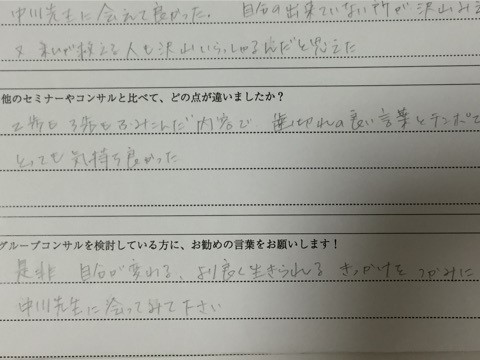 中川先生に会えて良かった。自分の出来ていない所が沢山みえ
又 まだが救える人も沢山いらっしゃるんだと思えた
他のセミナーやコンサルと比べて、どの点が違いましたか?
2歩も3歩もふみこんだ内容で 歯切れの良い言葉とテンポで
とっても気持ち良かった
グループコンサルを検討している方に、お勧めの言葉をお願いします!
是非 自分が変われる、より良く生きられる きっかけを つかみに
中川先生に会ってみて下さい